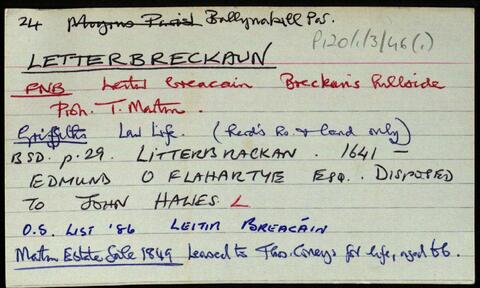 24 Moyrus Parish Ballynakill Par.
P120/1/3/46(1)
LETTERBRECKAUN
PNB Leitir Breacain Breckan's hillside
Prop. T. Martin.
Griffiths Law Life. (Herd's Ho. & land only)
BSD. p. 29. LITTERBRACKAN. 1641 -
EDMUND O FLAHARTYE ESQ. DISPOSED
TO JOHN HALLES L
O.S. LIST '86 LEITIR BREACÁIN
Martin Estate Sale 1849 Leased to Thos. Coneys for life, aged 66.